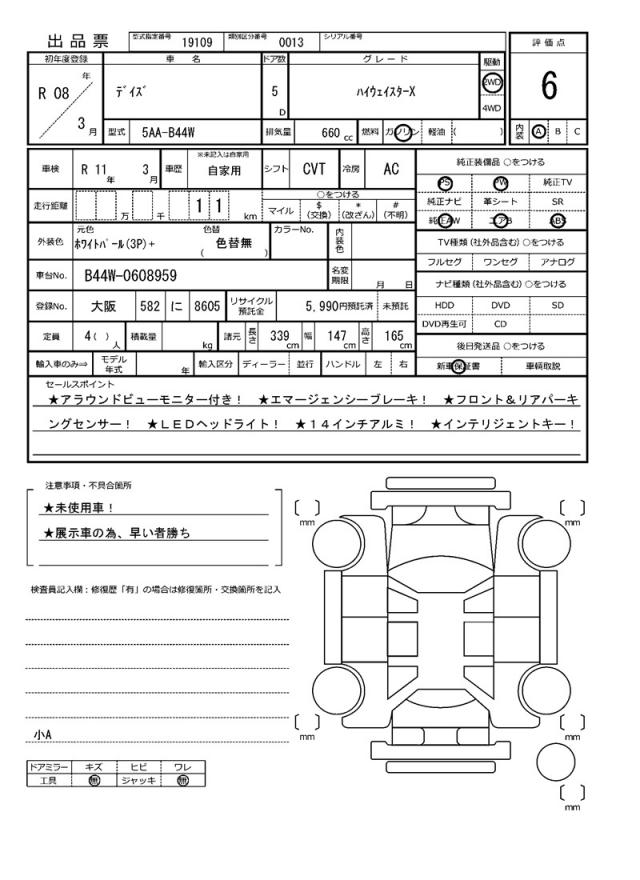 出品票 型式指定番号 19109 類別区分番号 0013 シリアル番号
評価点
6
内装 A B C
初年度登録 車名 ドア数 グレード 駆動
R 08 年 3 月 デイズ 5 D ハイウェイスターX 2WD 4WD
型式 5AA-B44W 排気量 660 cc 燃料 ガソリン 軽油 ( )
車検 R 11 年 3 月 車歴 ※未記入は自家用 自家用 シフト CVT 冷房 AC
走行距離 万 千 1 1 km ○をつける
マイル $(交換) *(改ざん) #(不明)
外装色 元色 ホワイトパール(3P)+ 色替 色替無 ( ) カラーNo. 内装色
車台No. B44W-0608959 名変期限 月 日
登録No. 大阪 582 に 8605 リサイクル預託金 5,990円預託済 未預託
定員 4( ) 人 積載量 kg 諸元 長さ 339 cm 幅 147 cm 高さ 165 cm
輸入車のみ⇒ モデル年式 年 輸入区分 ディーラー 並行 ハンドル 左 右
純正装備品 ○をつける
PS PW 純正TV
純正ナビ 革シート SR
純正AW エアB ABS
TV種類(社外品含む)○をつける
フルセグ ワンセグ アナログ
ナビ種類(社外品含む)○をつける
HDD DVD SD
DVD再生可 CD
後日発送品 ○をつける
新車保証書 車輌取説
セールスポイント
★アラウンドビューモニター付き! ★エマージェンシーブレーキ! ★フロント&リアパーキ
ングセンサー! ★LEDヘッドライト! ★14インチアルミ! ★インテリジェントキー!
注意事項・不具合箇所
★未使用車!
★展示車の為、早い者勝ち
検査員記入欄:修復歴「有」の場合は修復箇所・交換箇所を記入
小A
ドアミラー キズ ヒビ ワレ
工具 無 ジャッキ 無
mm
mm
mm
mm
mm